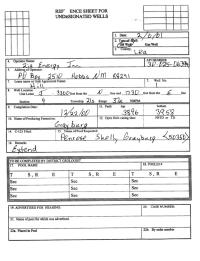 REFERENCE SHEET FOR
UNDESIGNATED WELLS
1. Date: 2/6/01
2. Type of Well:
Oil Well Gas Well
3. County:
Lea
4. Operator Name:
Zia Energy Inc.
API NUMBER
30-025-
5. Address of Operator:
PO Box 2510 Hobbs NM 88241
6. Lease name or Unit Agreement Name:
Hill
7. Well No.
8. Well Location
Unit Letter Feet from the Line and Feet from the Line
Section Township 21s Range 37e NMPM
9. Completion Date:
12/22/00
10. Perfs: top bottom
3896 3958
11. Name of Producing Formation:
Grayburg
12. Open Hole casing shoe: PBTD or TD
14. C-123 filed:
15. Name of Pool Requested:
Penrose Skelly, Grayburg <50350>
16. Remarks:
Extend
TO BE COMPLETED BY DISTRICT GEOLOGIST
17. POOL NAME
18. POOL ID #
T S, R E T S, R E T S, R E
Sec Sec Sec
Sec Sec Sec
Sec Sec Sec
19. ADVERTISED FOR HEARING:
20. CASE NUMBER:
21. Name of pool for which was advertised
22a. Placed in Pool
22b. By order number